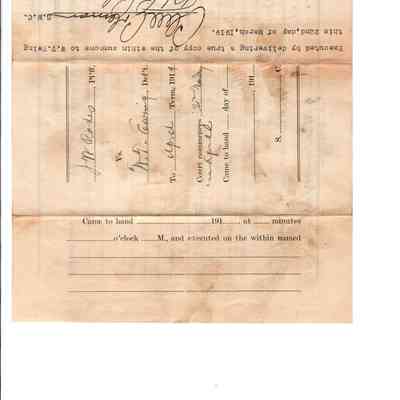 Executed by delivering a true copy of the within summons to W.P. Ewing
this 22nd, day of March, 1919.
S.B.C.
J W Rodes Pl'ff.
Vs.
Ewing Def't.
To April Term, 1919
Court commences
Came to hand day of
191
S. C.
Came to hand 191 at minutes
o'clock M., and executed on the within named